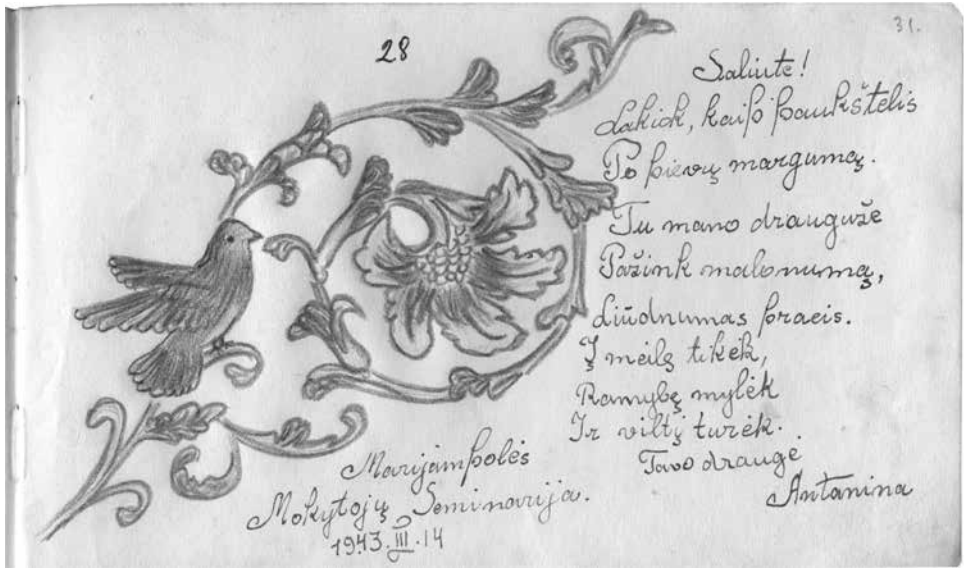 28
31.
Saliute!
Lakiok, kaip paukštelis
Po pievų margumą.
Tu mano drauguže
Pažink malonumą,
Liūdnumas praeis.
Į meilę tikėk,
Ramybę mylėk
Ir viltį turėk.
Tavo draugė
Antanina
Marijampolės
Mokytojų Seminarija.
1943.III.14